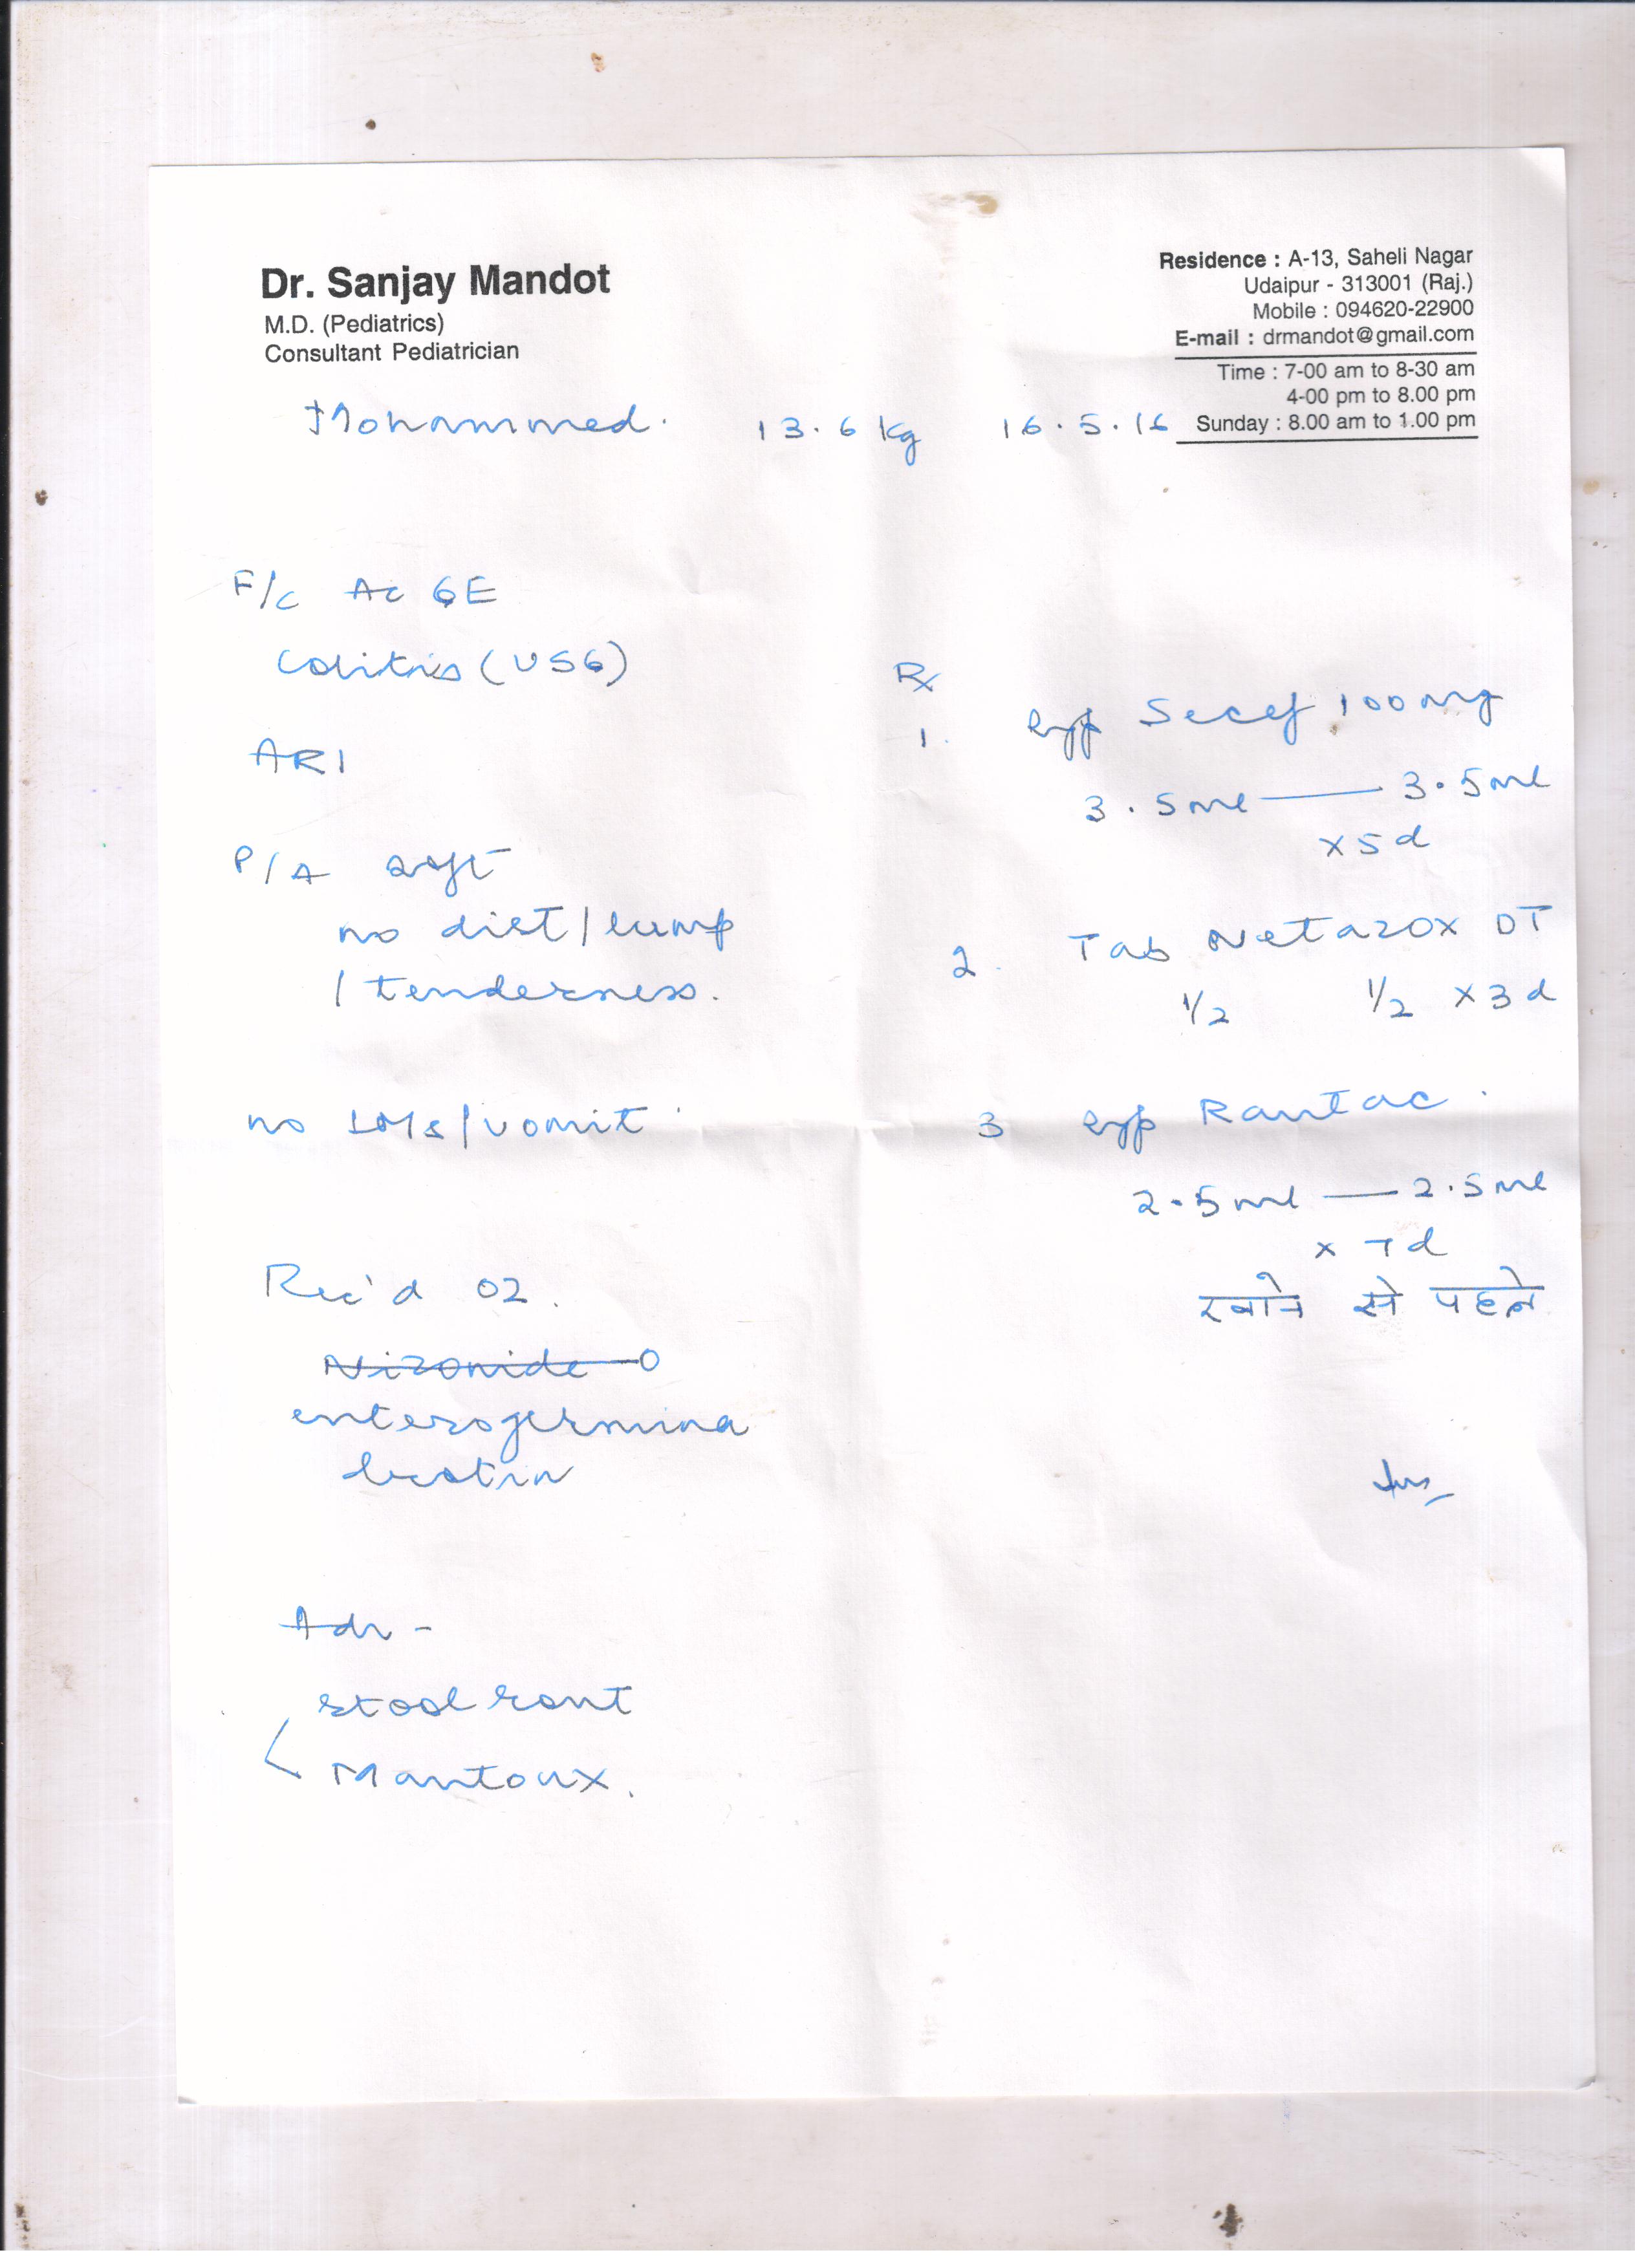 Dr. Sanjay Mandot
M.D. (Pediatrics)
Consultant Pediatrician
Residence : A-13, Saheli Nagar
Udaipur - 313001 (Raj.)
Mobile : 094620-22900
E-mail : drmandot@gmail.com
Time : 7-00 am to 8-30 am
4-00 pm to 8.00 pm
Sunday : 8.00 am to 1.00 pm
Mohammed. 13.6 kg 16.5.16
F/c Ac GE
Colitis (USG)
ARI
P/A soft
no dist / lump
/ tenderness.
no LMs / vomit
Rec'd O2.
Nizonide-O
enterogermina
Adv -
stool rout
Mantoux.
Rx
1. Syp Secef 100mg
3.5ml — 3.5ml
x5d
2. Tab Netazox DT
1/2 1/2 x 3d
3 Syp Rantac.
2.5ml — 2.5ml
x 7d
खाने से पहले